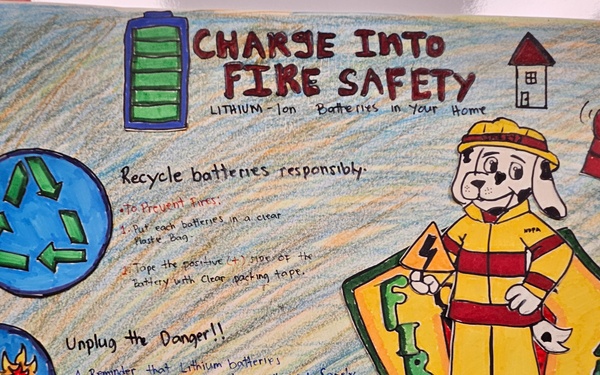 CHARGE INTO
FIRE SAFETY
LITHIUM-Ion Batteries in Your Home
Recycle batteries responsibly.
•To Prevent Fires:
1. Put each batteries in a clear
Plastic Bag.
2. Tape the positive (+) side of the
battery with clear packing tape.
NFPA
FIR
Unplug the Danger!!
A Reminder that Lithium batteries